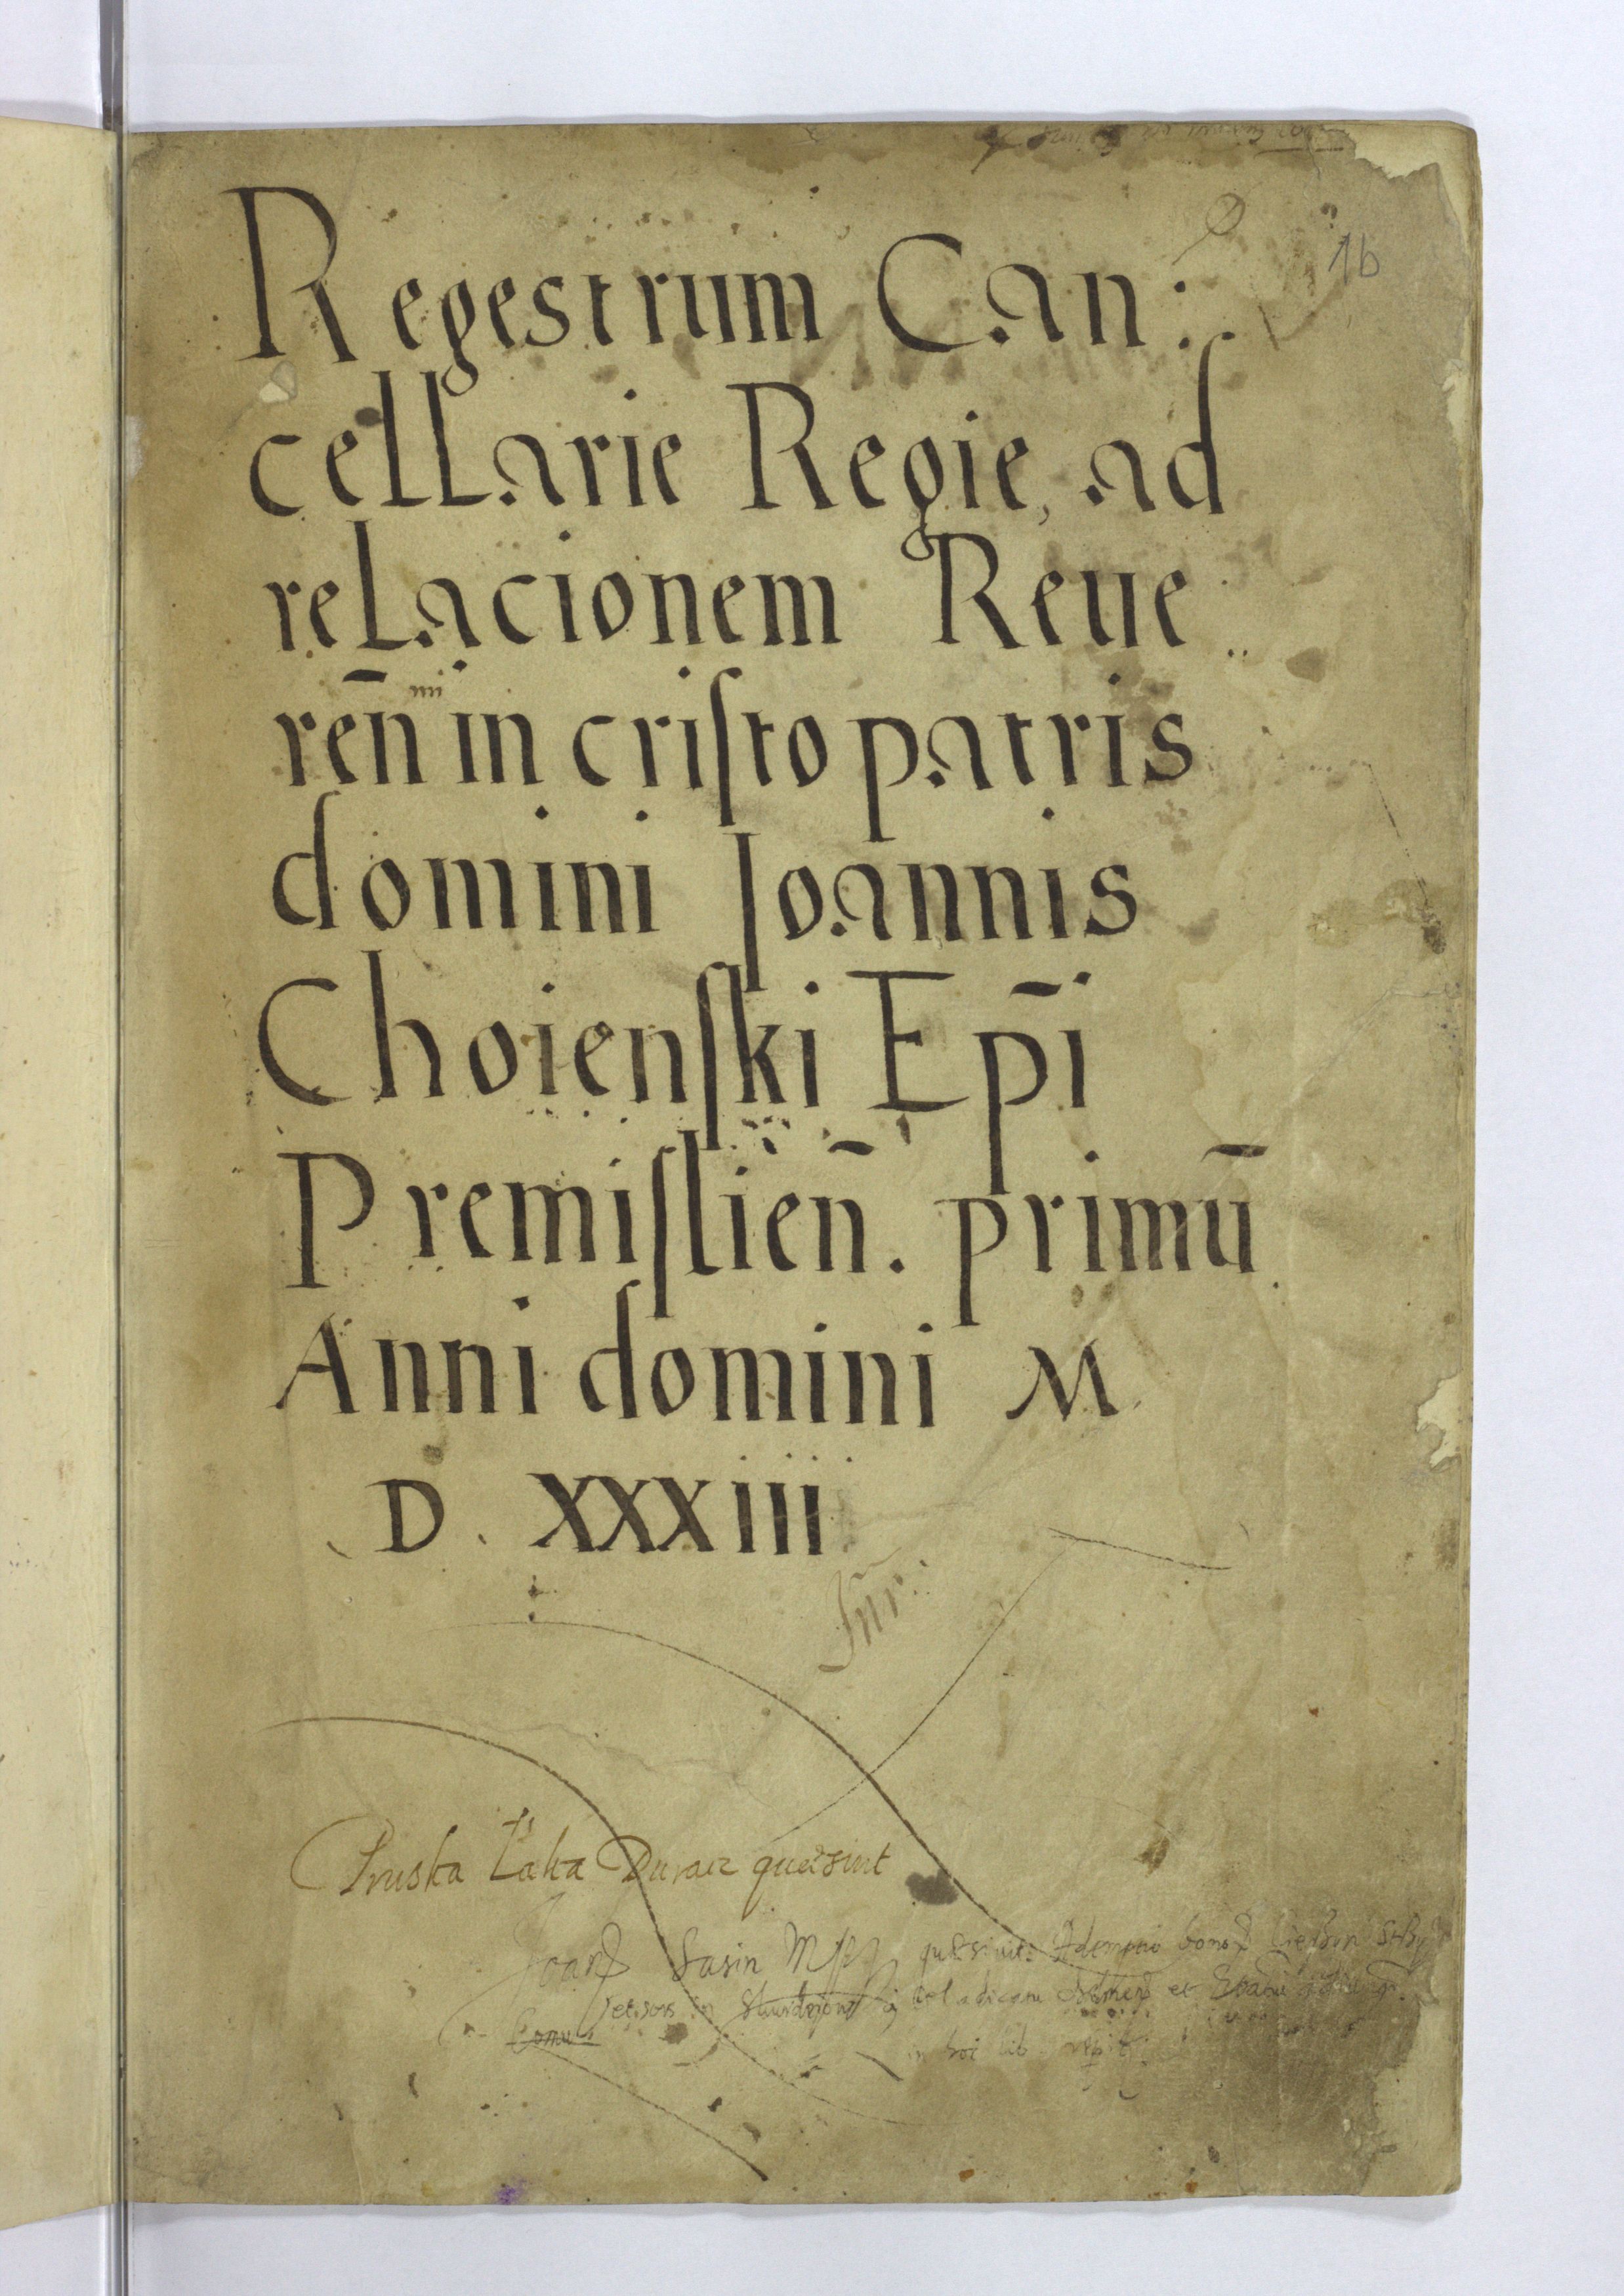 1b
Regestrum Can:
cellarie Regie, ad
relacionem Reue
ren̄ in cristo patris
domini Ioannis
Choienſki Ep̄i
Premiſlien̄. primū
Anni domini M
D. XXXIII
Pruska Łaka Duracz quesiut
Sasin
in hoc lib